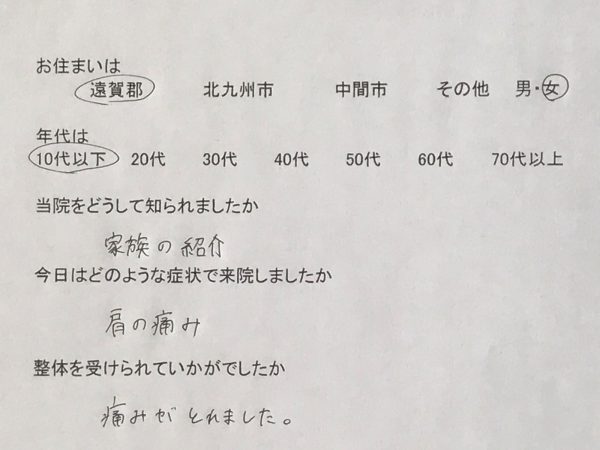 お住まいは
遠賀郡 北九州市 中間市 その他 男・女
年代は
10代以下 20代 30代 40代 50代 60代 70代以上
当院をどうして知られましたか
家族の紹介
今日はどのような症状で来院しましたか
肩の痛み
整体を受けられていかがでしたか
痛みがとれました。